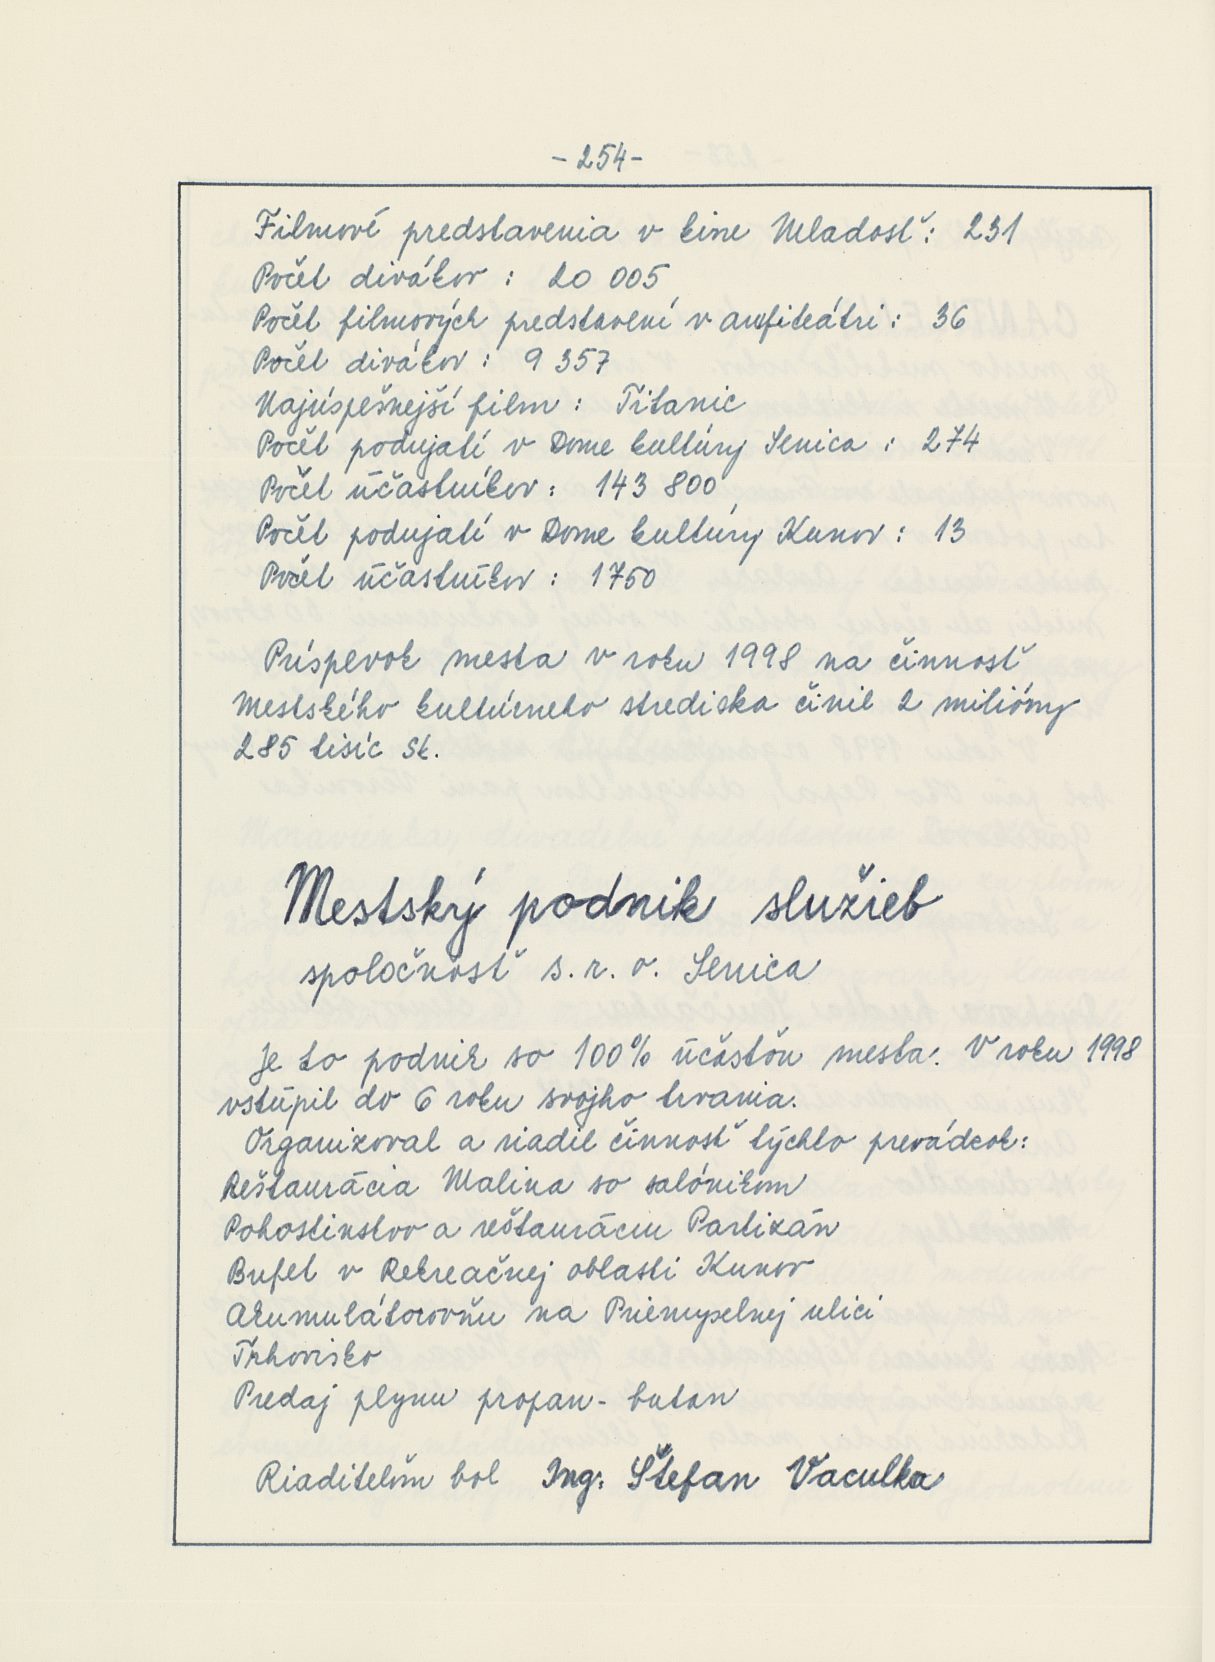 - 254 -
Filmové predstavenia v kine Mladosť: 231
Počet divákov : 20 005
Počet filmových predstavení v amfiteátri : 36
Počet divákov : 9 357
Najúspešnejší film : Titanic
Počet podujatí v Dome kultúry Senica : 274
Počet účastníkov : 143 800
Počet podujatí v Dome kultúry Kunov : 13
Počet účastníkov : 1750
Príspevok mesta v roku 1998 na činnosť
Mestského kultúrneho strediska činil 2 milióny
285 tisíc Sk.
Mestský podnik služieb
spoločnosť s. r. o. Senica
Je to podnik so 100% účasťou mesta. V roku 1998
vstúpil do 6 roku svojho trvania.
Organizoval a riadil činnosť týchto prevádzok:
Reštaurácia Malina so salónikom
Pohostinstvo a reštauráciu Partizán
Bufet v Rekreačnej oblasti Kunov
Akumulátorovňu na Priemyselnej ulici
Trhovisko
Predaj plynu propan - butan
Riaditeľom bol Ing. Štefan Vaculka